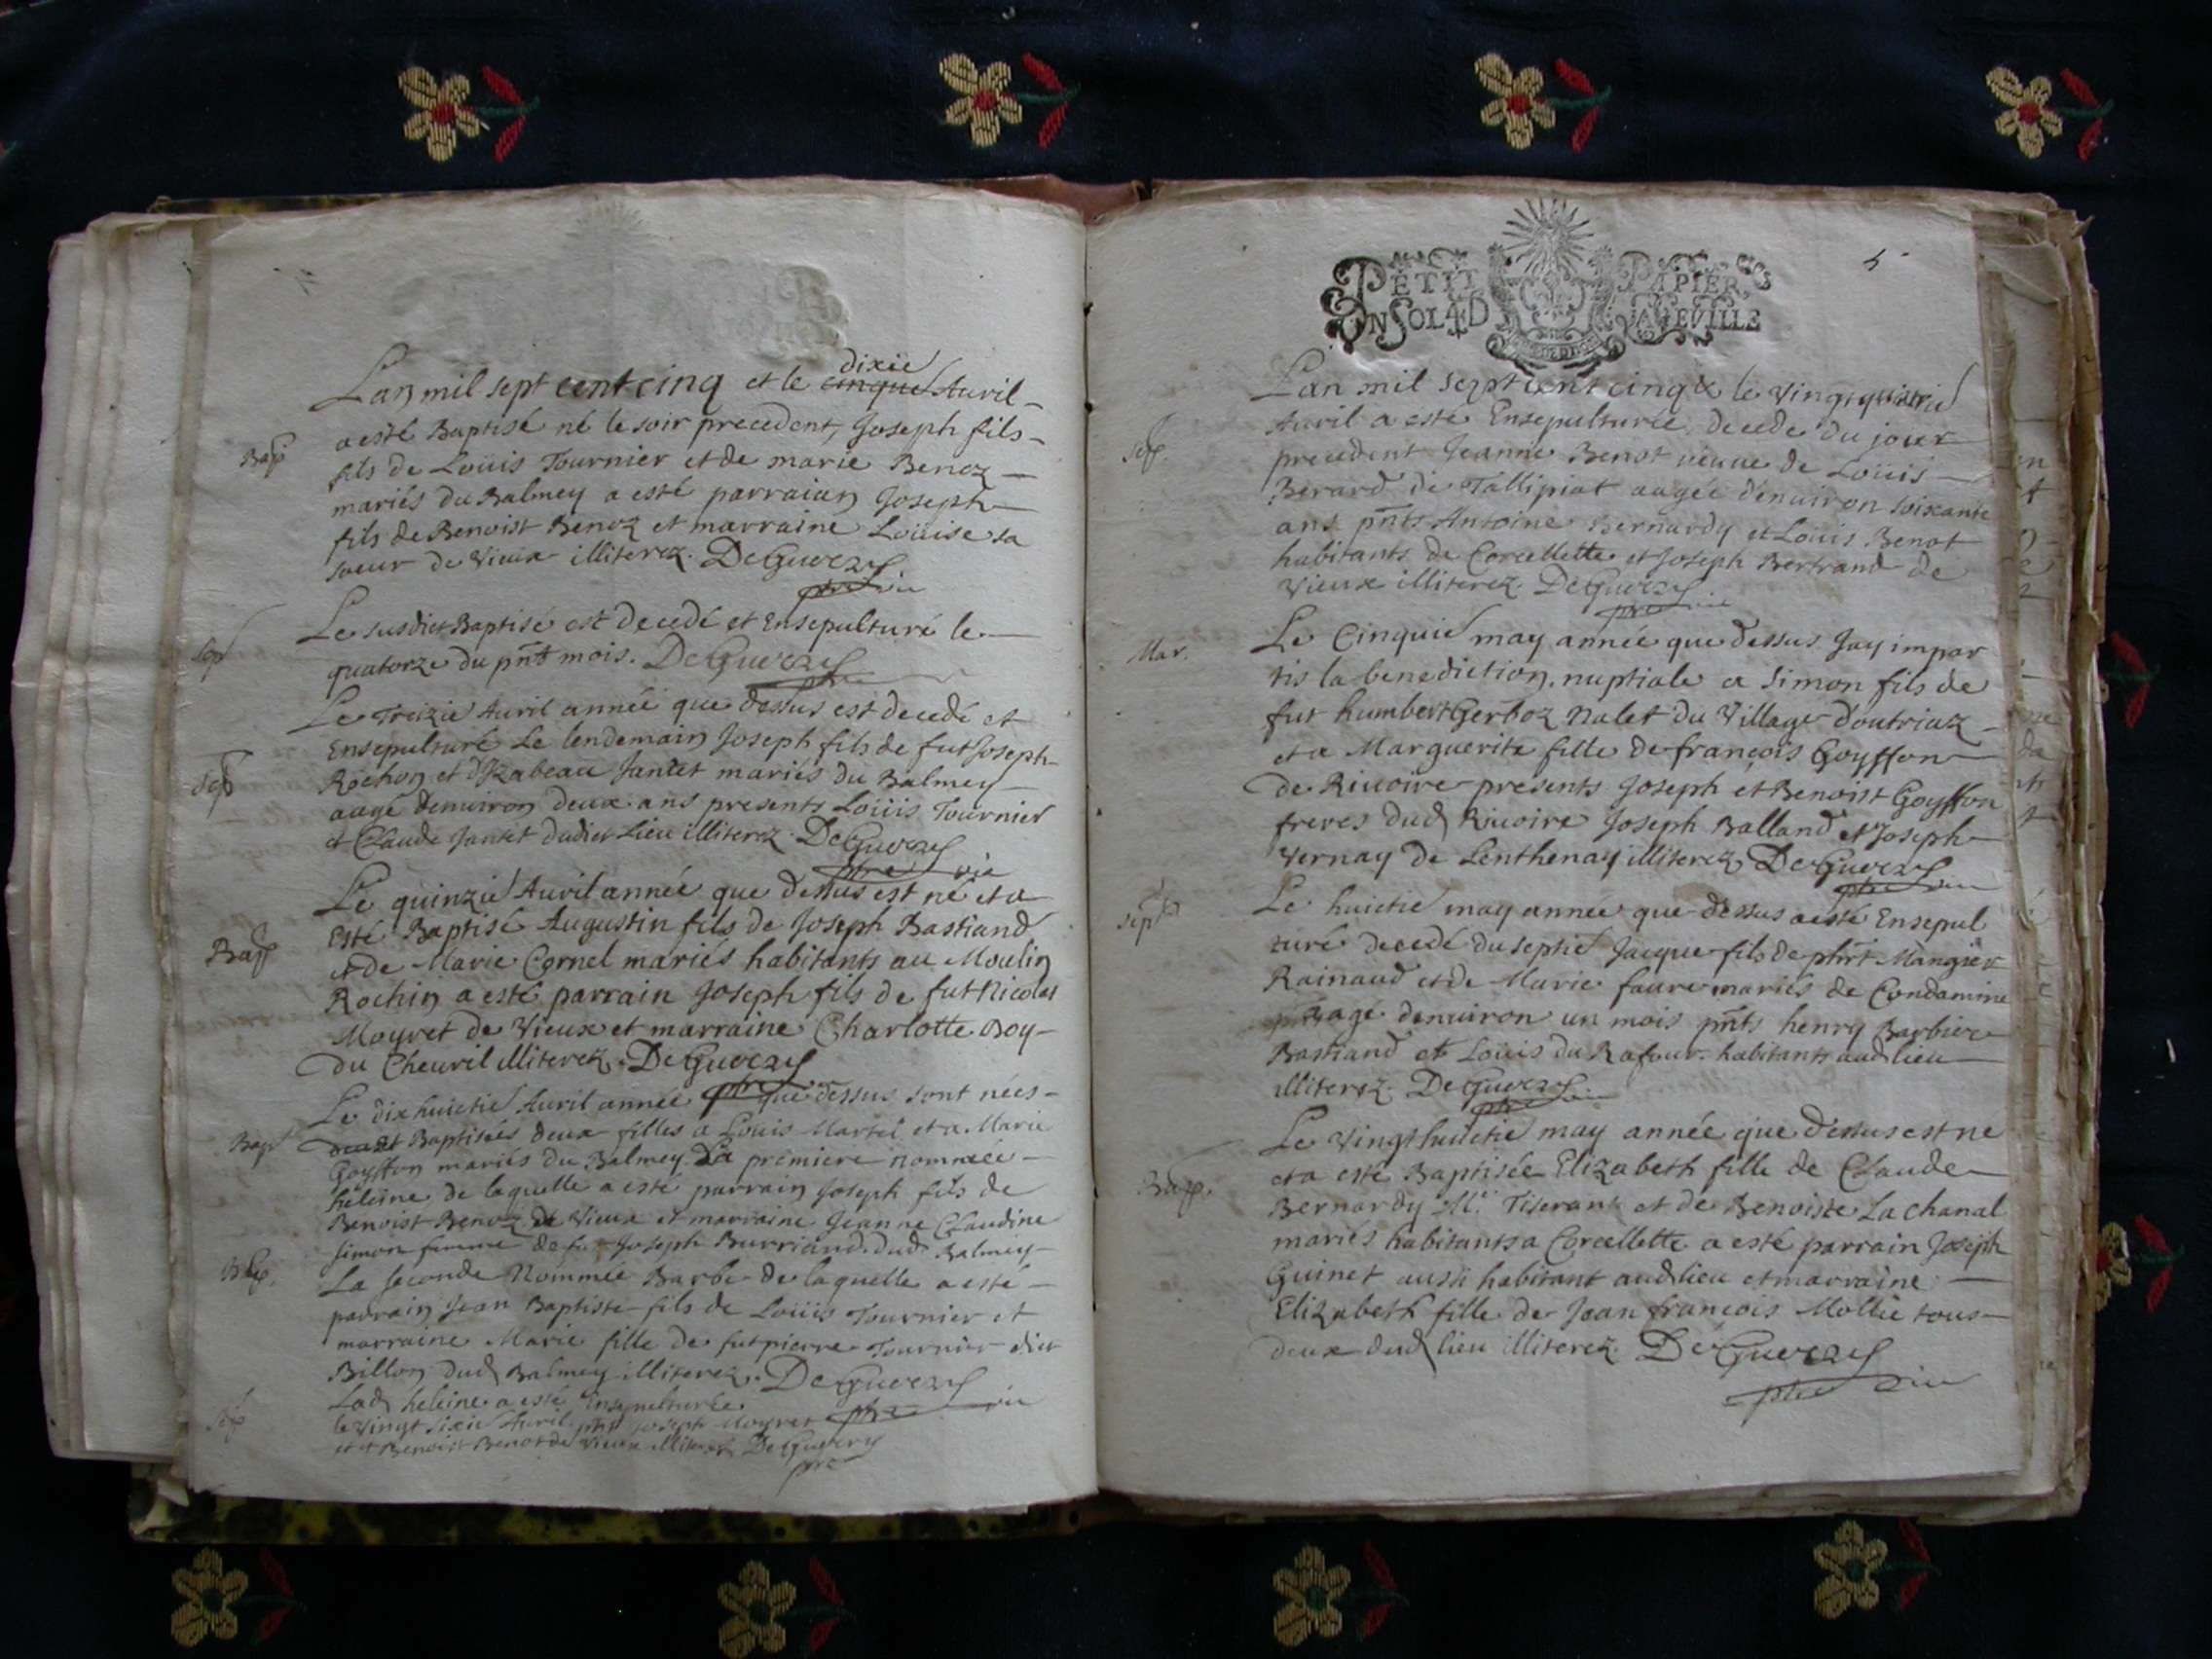 Lan mil sept cent cinq et le cinquie dixie Auril
Bap
a esté Baptisé né le soir precedent, Joseph fils
fils de Loüis Tournier et de marie Benoz
mariés du Balmey a esté parraian Joseph
fils de Benoist Benoz et marraine Loüise sa
soeur de Vieux illiterez. DeGuerry
ptre vic
Sep
Le susdict Baptisé est decedé et Ensepulturé le
quatorze du pnt mois. DeGuerry
ptre
Le Treizie Auril année que dessus est decedé et
Sep
Ensepulturé Le lendemain Joseph fils de fut Joseph
Rochon et dYzabeau Jantet mariés du Balmey
aagé denuiron deux ans presents Loüis Tournier
et Claude Jantet dudict Lieu illiterez. DeGuerry
ptre vic
Le quinzie Auril année que dessus est né et a
Bap
Esté Baptisé Augustin fils de Joseph Bastiand
et de Marie Cornel mariés habitants au Moulin
Rochin a esté parrain Joseph fils de fut Nicolas
Moyret de Vieux et marraine Charlotte Boy
du Cheuril illiterez. DeGuerry
ptre
Le dixhuictie Auril année que dessus sont nées
Bap
Baptisées deux filles a Loüis Martel et a Marie
Goyffon mariés du Balmey. La premiere nommée
heleine de laquelle a esté parrain Joseph fils de
Benoist Benoz de Vieux et marraine Jeanne Claudine
Simon femme de Joseph Burriand dud Balmey
Bap.
La seconde Nommée Barbe de laquelle a esté
parrain Jean Baptiste fils de Loüis Tournier et
marraine Marie fille de fut pierre Tournier dict
Billon dud Balmey illiterez. DeGuerry
Sep
Lad heleine a esté Ensepulturée
ptre vic
le Vingt sixie Auril pnts Joseph Moyret
et Benoist Benot de Vieux illiterez DeGuerry
ptre
5
PETIT PAPIER
UN SOL 4 D LA FEVILLE
Lan mil sept cent cinq & le vingt quatrie
Sep.
Auril a esté Ensepulturée, decede du jour
precedent Jeanne Benot veuue de Loüis
Berard de Tallipiat aagée denuiron soixante
ans pnts Antoine Bernardy et Loüis Benot
habitants de Corcellette et Joseph Bertrand de
Vieux illiterez. DeGuerry
ptre vic
Mar.
Le Cinquie may année que dessus Jay impar
tis la benediction nuptiale a Simon fils de
fut humbert Gerboz Nalet du Village doutriaz
et a Marguerite fille de françois Goyffon
de Riuoire presents Joseph et Benoist Goyffon
freres dud Riuoire Joseph Balland et Joseph
Vernay de Lenthenay illiterez DeGuerry
ptre vic
Sept
Le huictie may année que dessus a esté Ensepul
turé decedé du septie Jacque fils de phrt Mangier
Rainaud et de Marie faure mariés de Condamine
agé denuiron un mois pnts henry Barbier
Bastiand et Loüis du Rafour habitants aud lieu
illiterez. DeGuerry
ptre vic
Le Vingt huictie may année que dessus est ne
Bap.
et a esté Baptisée Elizabeth fille de Claude
Bernardy Mr. Tiserant et de Benoiste La chanal
mariés habitants a Corcellette a esté parrain Joseph
Guinet aussi habitant aud lieu et marraine
Elizabeth fille de Jean françois Mollie tous
deux dud lieu illiterez. DeGuerry
ptre vic